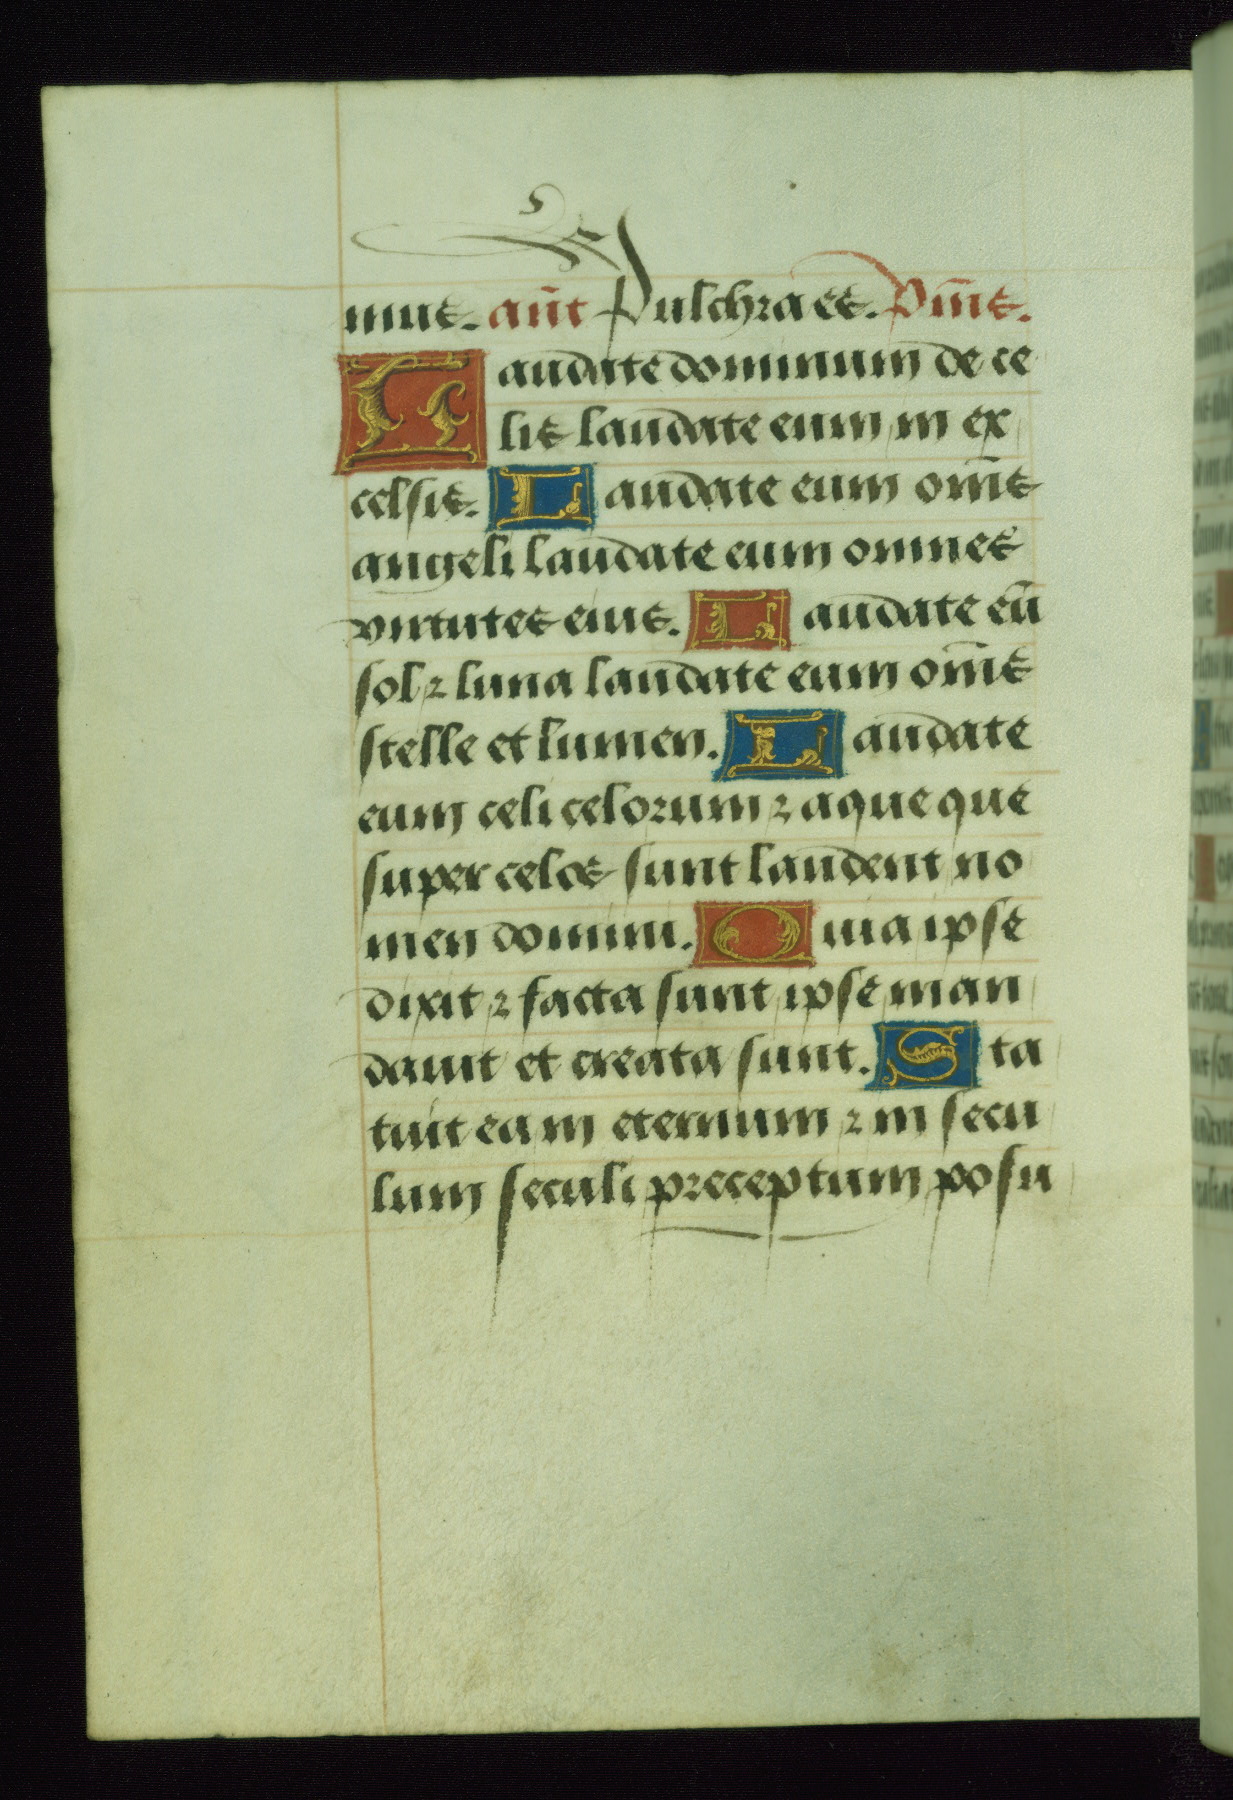 mus. añt Pulchra es. Psm̄s.
Laudate dominum de ce
lis laudate eum in ex
celsis. Laudate eum om̄s
angeli laudate eum omnes
virtutes eius. Laudate eū
sol ⁊ luna laudate eum om̄s
stelle et lumen. Laudate
eum celi celorum ⁊ aque que
super celos sunt laudent no
men domini. Quia ipse
dixit ⁊ facta sunt ipse man
dauit et creata sunt. Sta
tuit ea in eternum ⁊ in secu
lum seculi preceptum posu